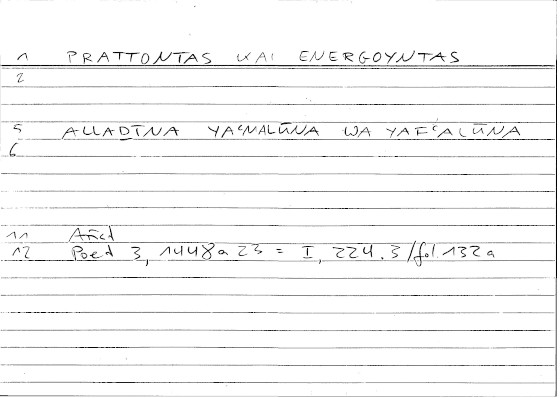 1 PRATTONTAS KAI ENERGOYNTAS
2
5 ALLADĪNA YAʿMALŪNA WA YAFʿALŪNA
6
11
12 Poet 3, 1448a23 = I, 224.3/fol.132a